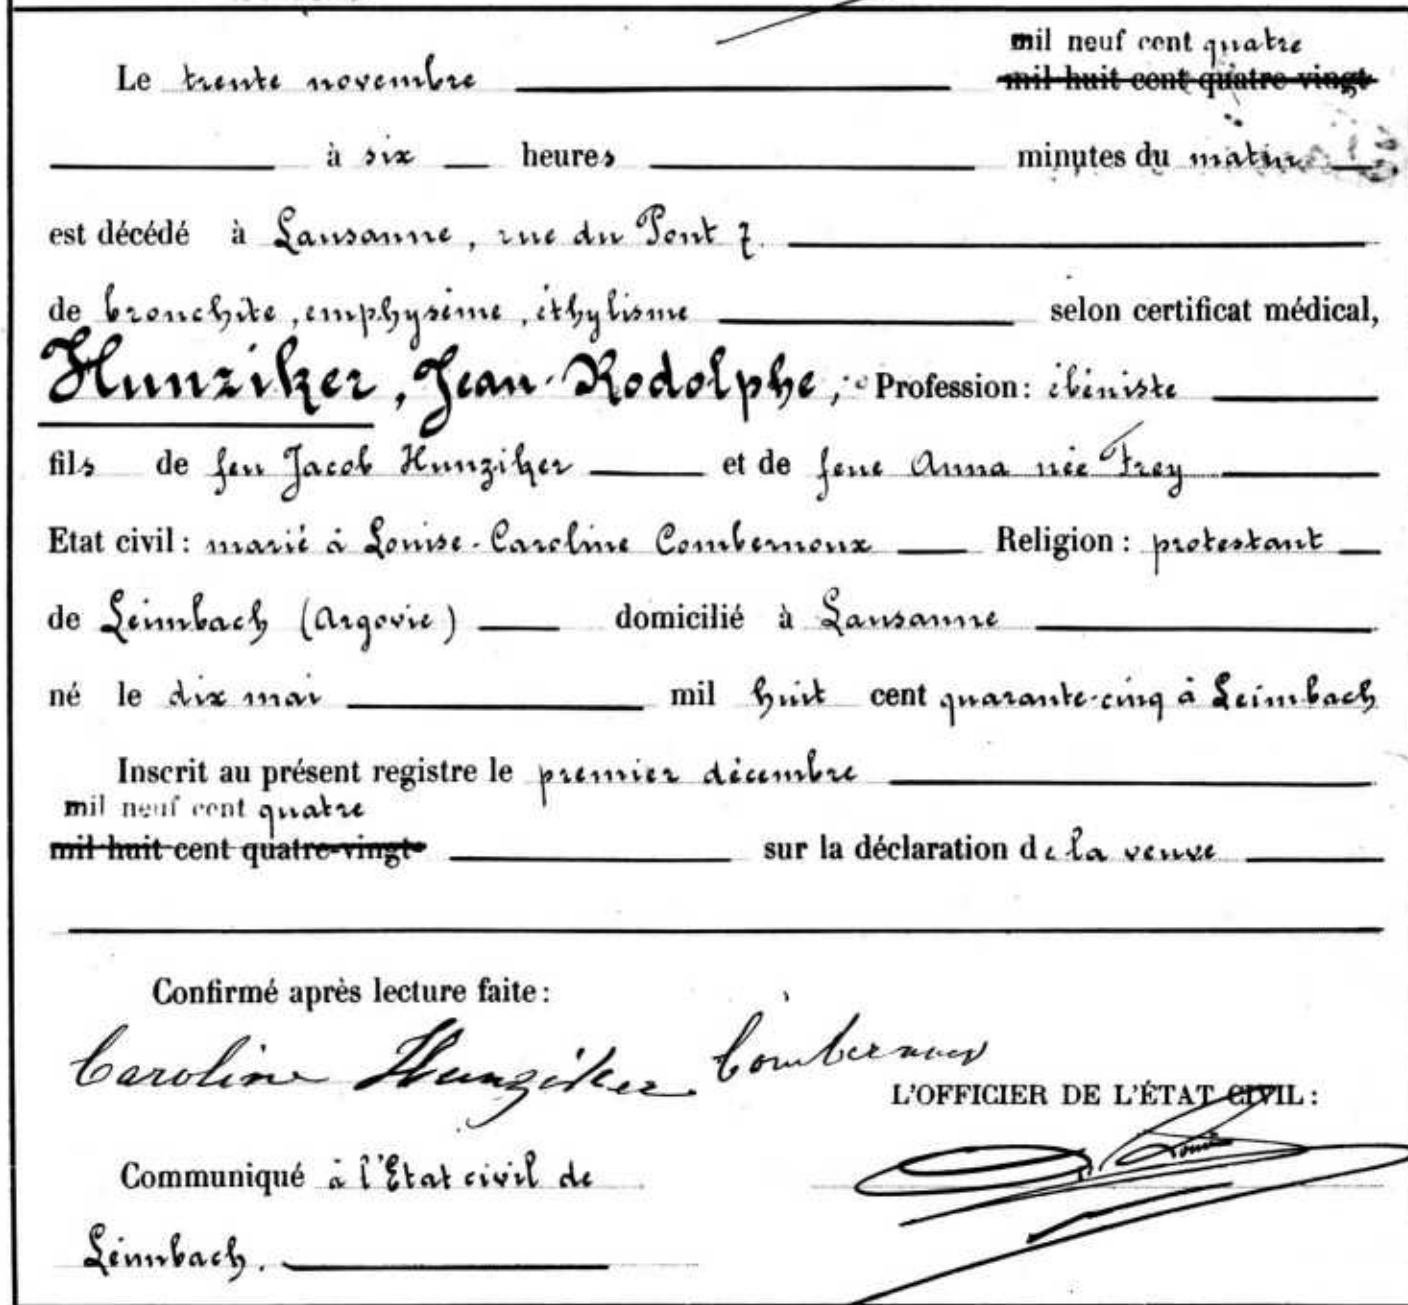 mil neuf cent quatre
Le trente novembre mil huit cent quatre-vingt
à six heures minutes du matin
est décédé à Lausanne, rue du Pont 7.
de bronchite, emphysème, éthylisme selon certificat médical,
Hunziker, Jean-Rodolphe, Profession: ébéniste
fils de feu Jacob Hunziker et de feue Anna née Frey
Etat civil: marié à Louise-Caroline Combernoux Religion: protestant
de Leimbach (Argovie) domicilié à Lausanne
né le dix mai mil huit cent quarante-cinq à Leimbach
Inscrit au présent registre le premier décembre
mil neuf cent quatre
mil huit cent quatre-vingt- sur la déclaration de la veuve
Confirmé après lecture faite:
Caroline Hunziker Combernoux
L'OFFICIER DE L'ÉTAT CIVIL:
Communiqué à l'Etat civil de
Leimbach.